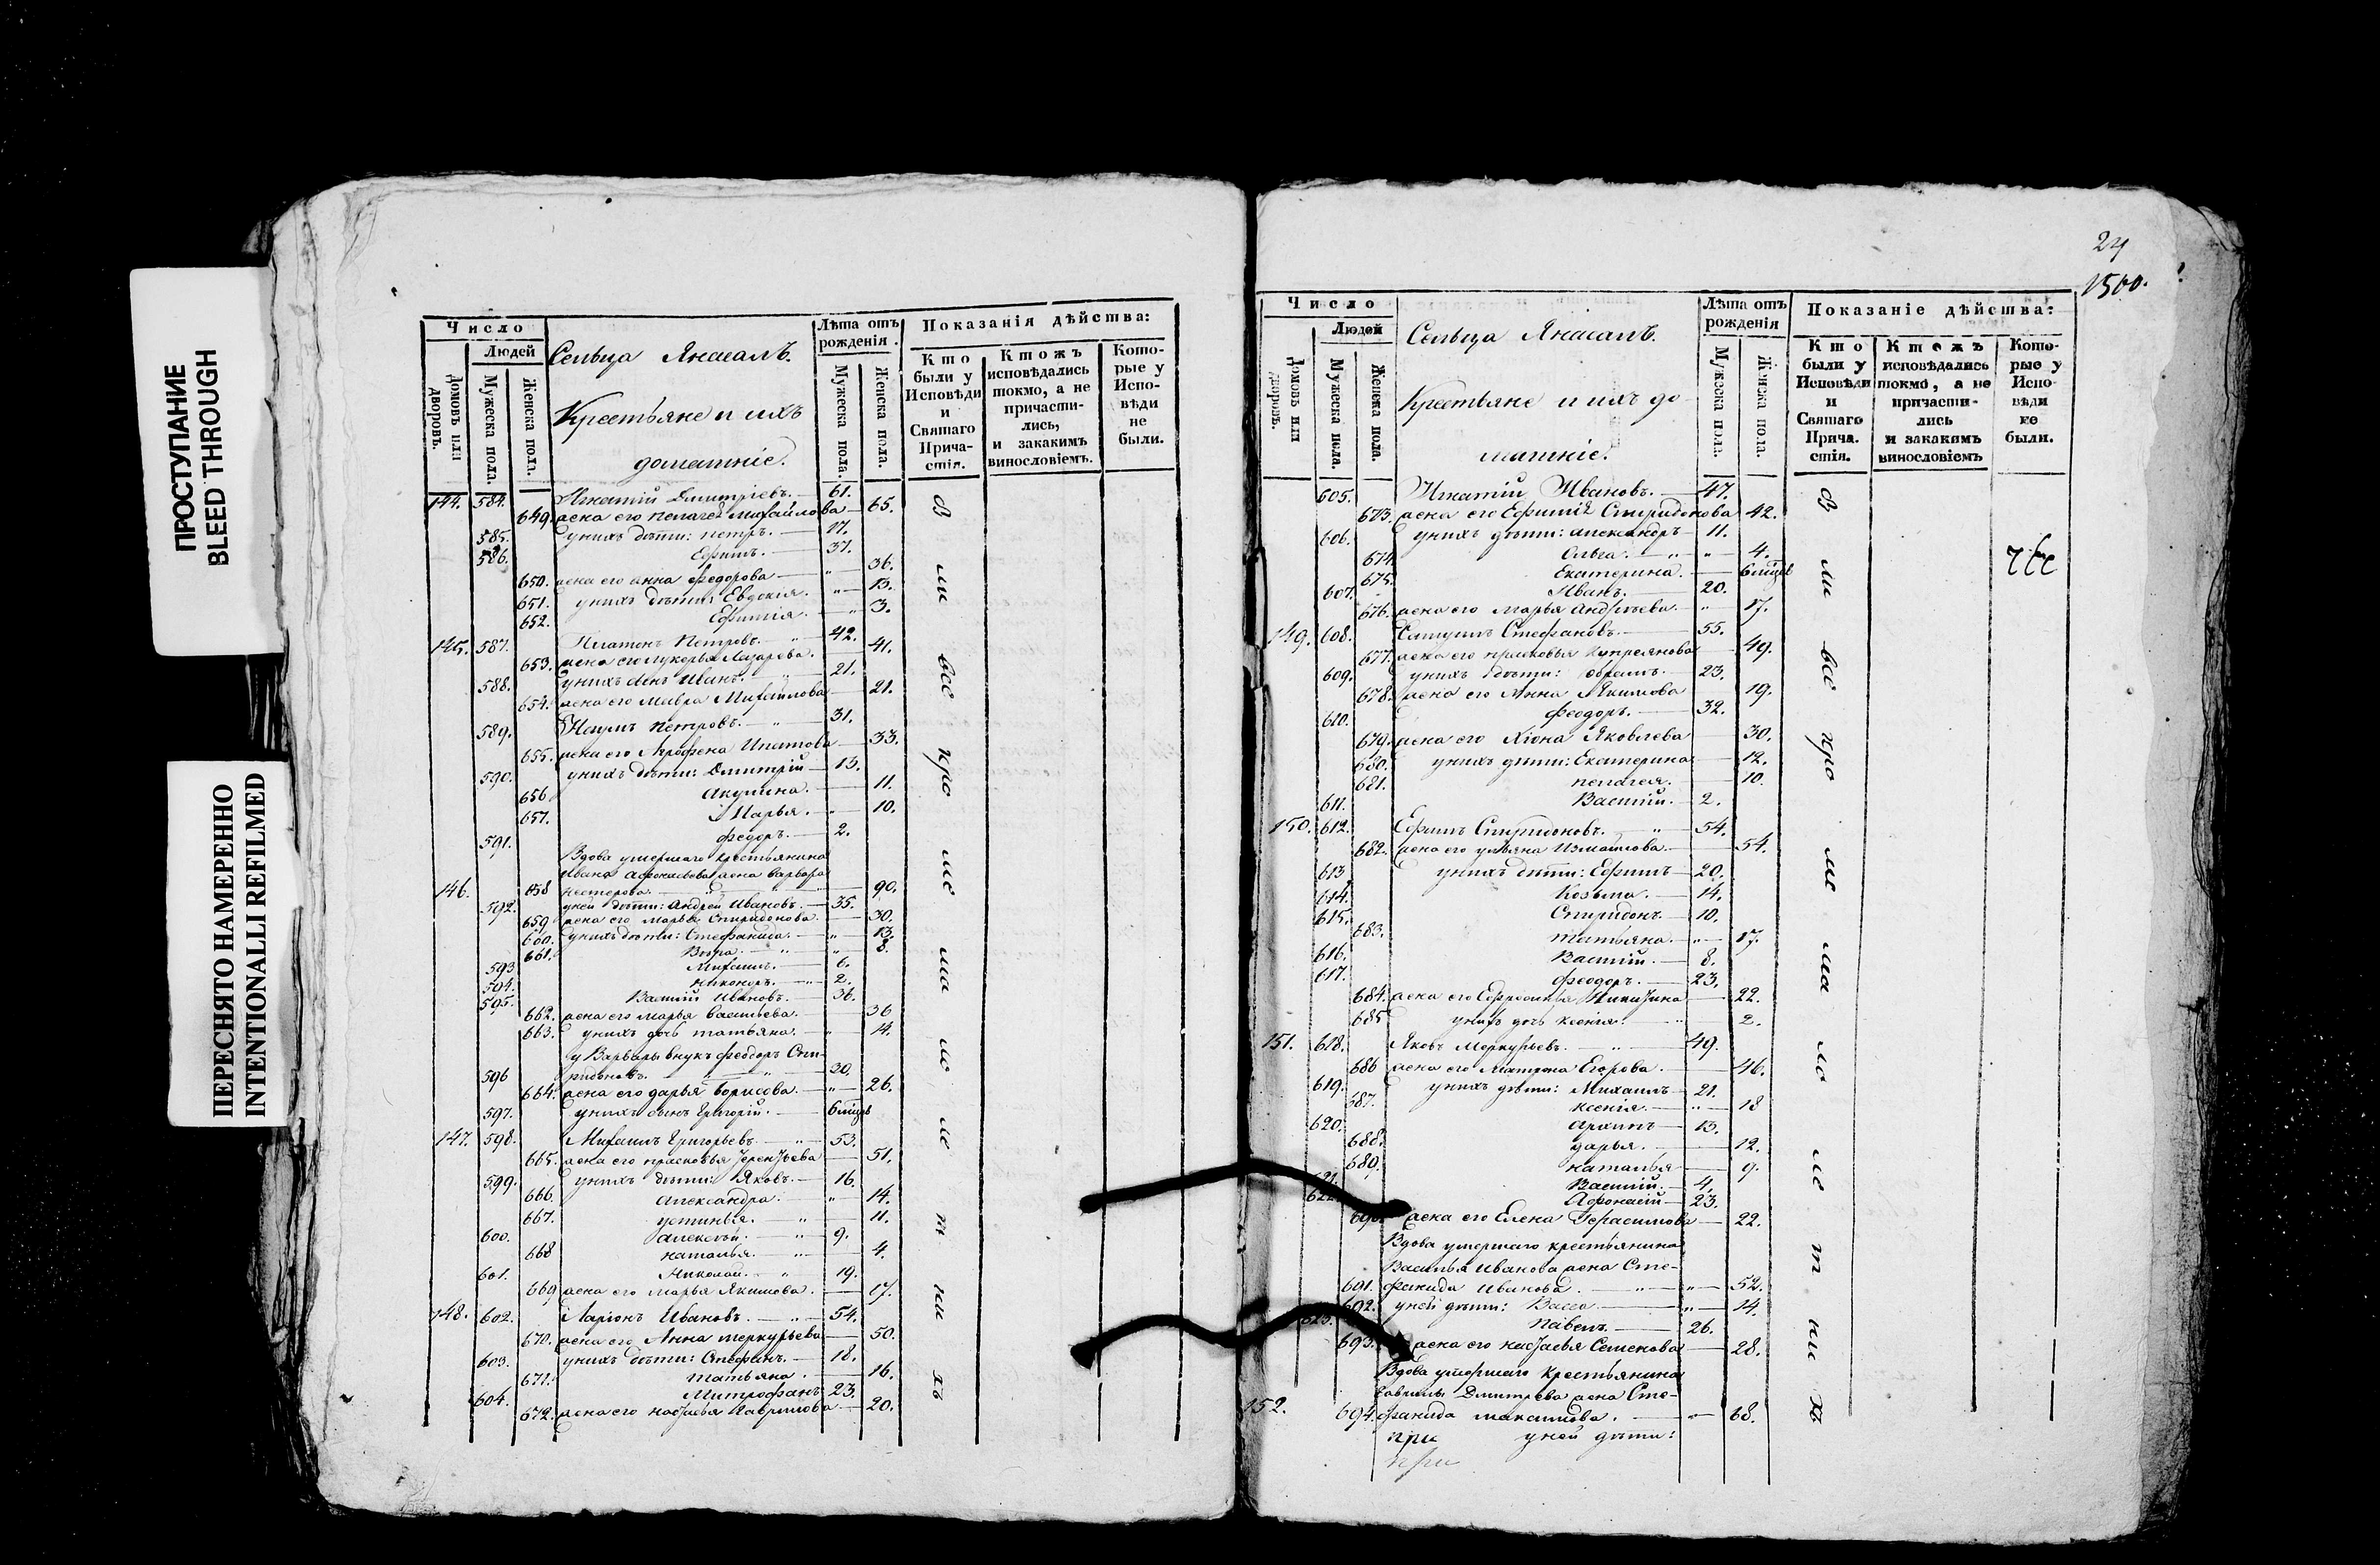 ПРОСТУПАНИЕ
BLEED THROUGH
ПЕРЕСНЯТО НАМЕРЕННО
INTENTIONALLI REFILMED
Число
Людей
Домовъ или дворовъ.
Мужеска пола.
Женска пола.
Сельца
Крестьяне и ихъ
домашніе.
Лѣта отъ рожденія.
Мужеска пола.
Женска пола.
Показанія дѣйства:
Кто были у Исповѣди и Святаго Причастія.
Ктожъ исповѣдались токмо, а не причастились, и закакимъ винословіемъ.
Которые у Исповѣди не были.
144. 584. Игнатій Дмитріевъ. 61.
649. жена его Пелагея Михайлова 65.
585. у нихъ дѣти: Петръ. 17.
586. Ефимъ. 37.
650. жена его Анна Федорова 36.
651. у нихъ дѣти: Евдокія. 13.
652. Ефимія. 3.
145. 587. Платонъ Петровъ. 42.
653. жена его Лукерья Лазарева. 41.
588. у нихъ сынъ Иванъ. 21.
654. жена его Мавра Михайлова 21.
589. Наумъ Петровъ. 31.
655. жена его Ипатова 33.
590. у нихъ дѣти: Дмитрій 13.
656. Акулина. 11.
657. Марья. 10.
591. Федоръ. 2.
Вдова умершаго крестьянина
Ивана Афонасьева жена Варвара
146. 658 Нестерова. 90.
592. у ней дѣти: Андрей Ивановъ. 35.
659. жена его Марья Спиридонова. 30.
660. у нихъ дѣти: Стефанида. 13.
661. Вѣра. 8.
593. Михаилъ. 6.
594. Никоноръ. 2.
595. Василій Ивановъ. 36.
662. жена его Марья Васильева. 36
663. у нихъ дочь Татьяна. 14.
у Варвары внукъ Феодоръ Спи-
596 ридоновъ. 30.
664. жена его Дарья Борисова. 26.
597. у нихъ сынъ Григорій. 6 мѣцъ
147. 598. Михаилъ Григорьевъ. 53.
665. жена его Прасковья Терентьева 51.
599. у нихъ дѣти: Яковъ. 16.
666. Александра. 14.
667. Устинья. 11.
600. Алексѣй. 9.
668 Наталья. 4.
601. Николай. 19.
669 жена его Марья Якимова. 17.
148. 602. Ларіонъ Ивановъ. 54.
670. жена его Анна Меркурьева 50.
603. у нихъ дѣти: Стефанъ. 18.
671. Татьяна. 16.
604. Митрофанъ 23.
672. жена его Настасья Гаврилова 20.
1500.
Число
Людей
Домовъ или дворовъ.
Мужеска пола.
Женска пола.
Сельца
Крестьяне и ихъ до-
машніе.
Лѣта отъ рожденія
Мужеска пола.
Женска пола.
Показаніе дѣйства:
Кто были у Исповѣди и Святаго Причастія.
Ктожъ исповѣдались токмо, а не причастились и закакимъ винословіемъ
Которые у Исповѣди не были.
605. Игнатій Ивановъ. 47.
673. жена его Ефимія Спиридонова 42.
606. у нихъ дѣти: Александръ 11.
674. Ольга. 4.
675. Екатерина. 6 мѣцъ
607. Иванъ. 20.
676. жена его Марья Андрѣева. 17.
149. 608. Стефановъ. 55.
677. жена его Прасковья Купреянова 49.
609. у нихъ дѣти: 23.
678. жена его Анна Якимова 19.
610. Феодоръ. 32.
679. жена его Хіона Яковлева 30.
680. у нихъ дѣти: Екатерина. 12.
681. Пелагея. 10.
611. Василій. 2.
150. 612. Ефимъ Спиридоновъ. 54.
682. жена его Ульяна Измайлова 54.
613 у нихъ дѣти: Ефимъ 20.
614. Козьма. 14.
615. Спиридонъ. 10.
683. Татьяна. 17.
616. Василій. 8.
617. Феодоръ. 23.
684. жена его Ефросинья Никитина 22.
685 у нихъ дочь Ксенія. 2.
151. 618. Яковъ Меркурьевъ. 49.
686 жена его Матрона Егорова. 46.
619. у нихъ дѣти: Михаилъ 21.
687. Ксенія. 18
620. Архипъ 13.
688. Дарья. 12.
689. Наталья 9.
621. Василій. 4.
622. Афонасій 23.
690. жена его Елена Герасимова 22.
Вдова умершаго крестьянина
Василья Иванова жена Сте-
691. фанида Иванова. 52.
692. у ней дѣти: Васса 14.
623. Павелъ. 26.
693. жена его Настасья Семенова 28.
Вдова умершаго крестьянина
Гаврилы Дмитрева жена Сте-
152. 694. фанида Максимова. 68.
при у ней дѣти:
при